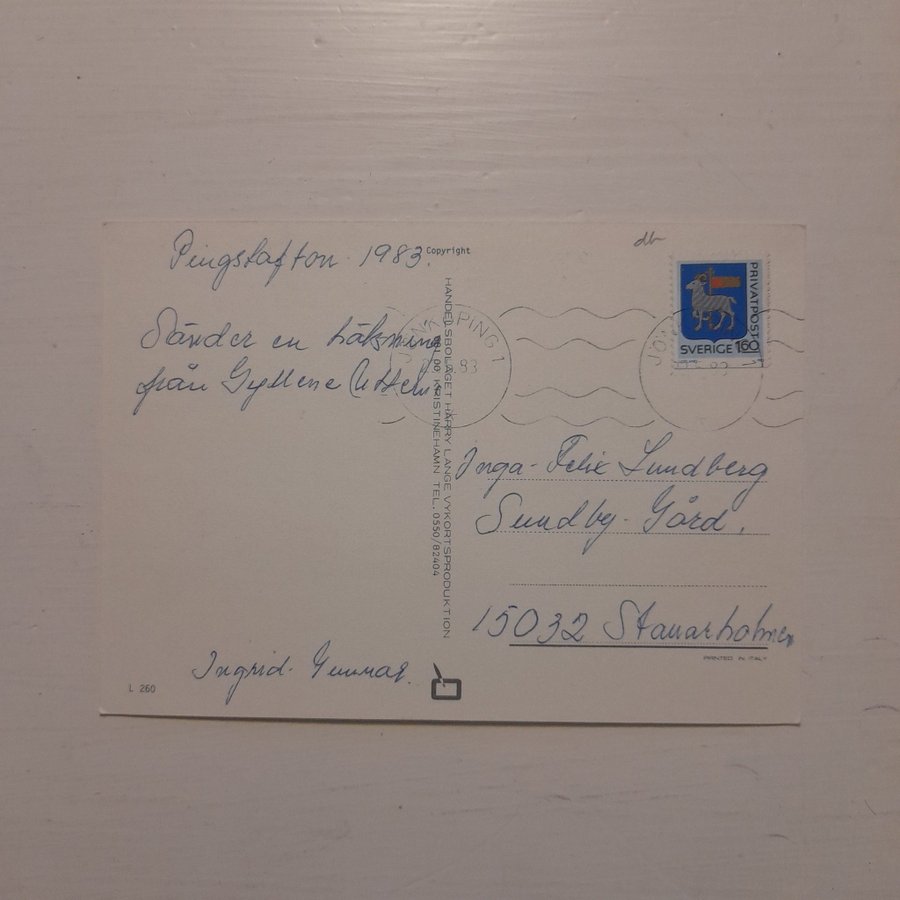 Pingstafton 1983.
Sänder en hälsning
från Gyllene Uttern
Ingrid. Gunnar.
L 260
Copyright
HANDELSBOLAGET HARRY LANGE VYKORTSPRODUKTION
KRISTINEHAMN TEL. 0550/82404
JÖNKÖPING 1
83
PRIVATPOST
SVERIGE 160
Inga-Felix Lundberg
Sundby-Gård.
15032 Stallarholmen
PRINTED IN ITALY